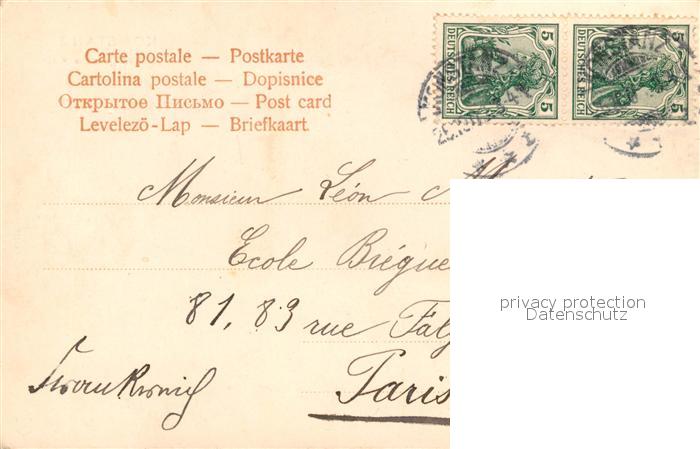 Carte postale — Postkarte
Cartolina postale — Dopisnice
Открытое Письмо — Post card
Levelező-Lap — Briefkaart
5 DEUTSCHES REICH 5
5 DEUTSCHES REICH 5
Monsieur Léon
Ecole Brégue
81, 83 rue Falg
Paris
Frankreich
privacy protection
Datenschutz